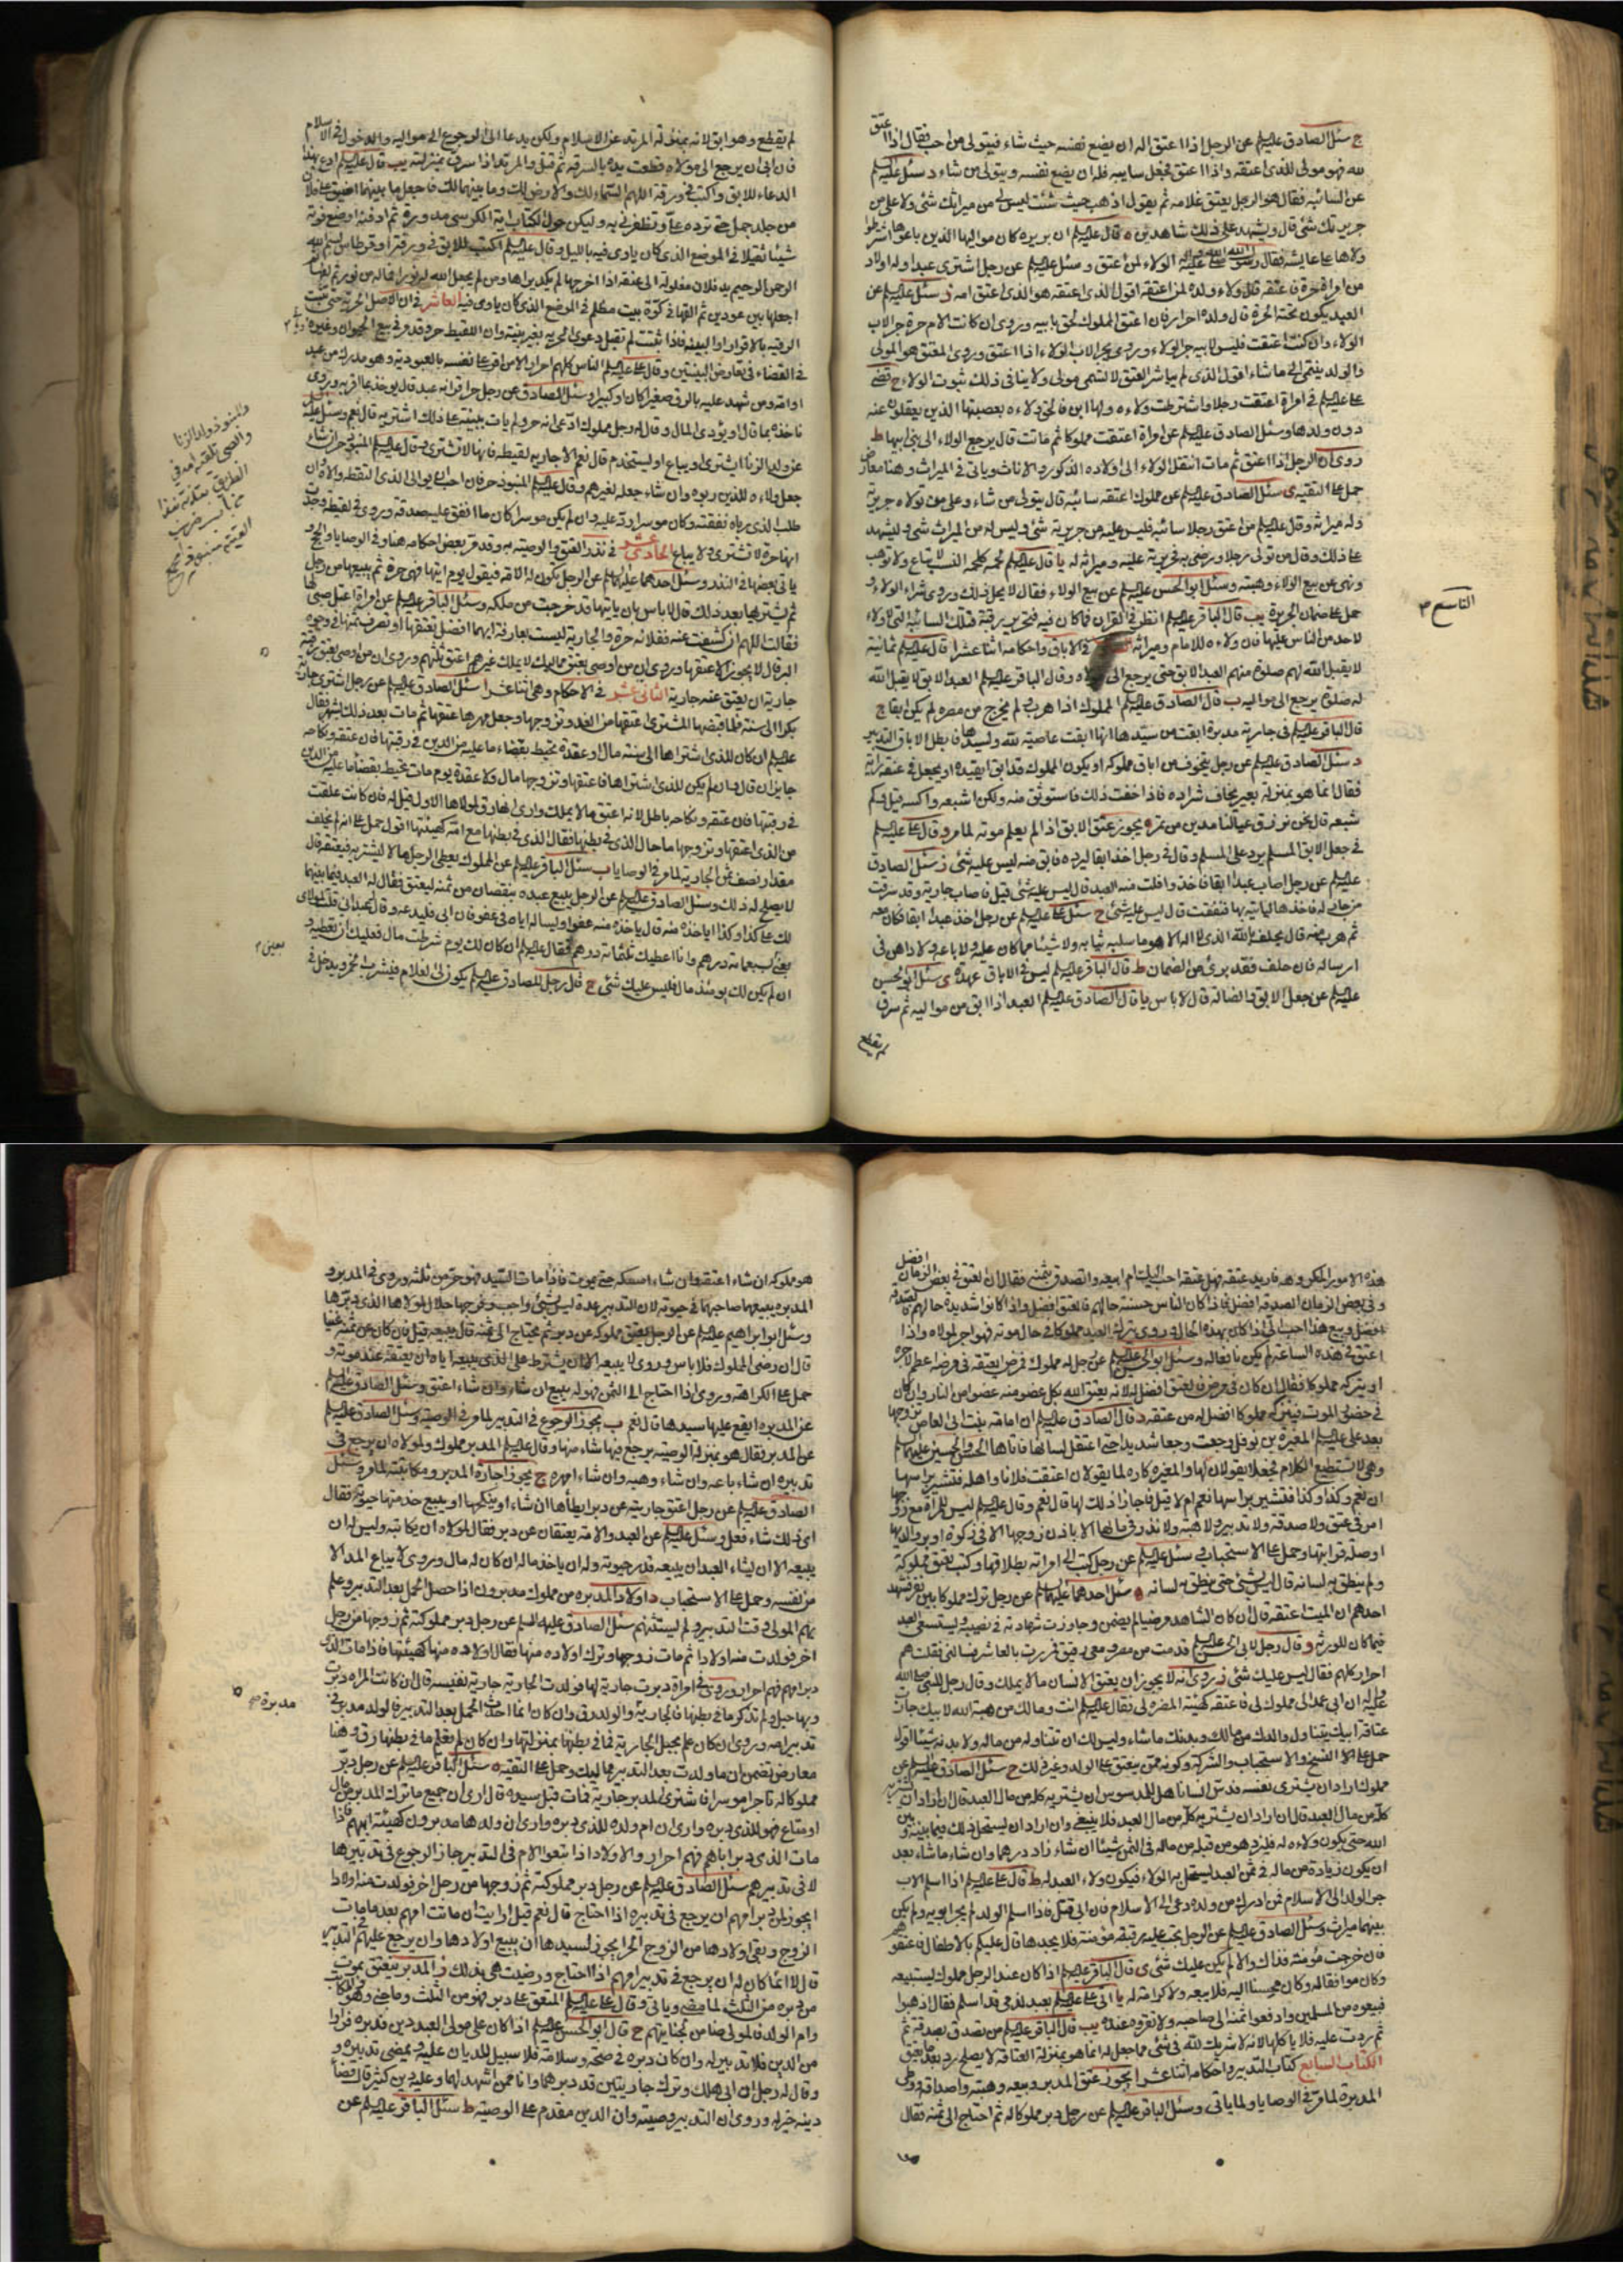 ج سئل الصادق عليه السلم عن الرجل اذا اعتق اله ان يضع نفسه حيث شاء فيتولى من احب فقال اذا اعتق
لله فهو مولى للذى اعتقه واذا اعتق فجعل سايبه فله ان يضع نفسه ويتولى من شاء د سئل عليه السلم
عن السائبه فقال هو الرجل يعتق غلامه ثم يقول اذهب حيث شئت ليس لى من ميراثك شئ ولا على من
جريرتك شئ قال ويشهد على ذلك شاهدين ه قال عليه السلم ان بريره كان مواليها الذين باعوها اشترطوا
ولاها على عايشه فقال رسول الله صلى الله عليه واله الولاء لمن اعتق وسئل عليه السلم عن رجل اشترى عبدا وله اولاد
من امراة حرة فاعتقه قال ولاء ولده لمن اعتقه اقول الذى اعتقه هو الذى اعتق امه ز سئل عليه السلم عن
العبد يكون تحته الحرة قال ولده احرار فان اعتق المملوك لحق بابيه وروى ان كانت الام حرة جر الاب
الولاء وان كنت اعتقت فليس لابيه جر الولاء وروى يجر الاب الولاء اذا اعتق وروى المعتق هو المولى
والولد ينتمى الى ما شاء اقول الذى لم يباشر العتق لا تسمى مولى ولا ينافى ذلك ثبوت الولاء ح قضى
على عليه السلم فى امراة اعتقت رجلا واشترطت ولاءه ولها ابن فالحق ولاءه بعصبتها الذين يعقلون عنه
دون ولدها وسئل الصادق عليه السلم عن امراة اعتقت مملوكا ثم ماتت قال يرجع الولاء الى بنى ابيها ط
روى ان الرجل اذا اعتق ثم مات انتقل الولاء الى اولاده الذكور والاناث وياتى فى الميراث وهنا معارض
حمل على التقيه ى سئل الصادق عليه السلم عن مملوك اعتقه سائبه قال يتولى من شاء وعلى من تولاه جريرته
وله ميراثه وقال عليه السلم من اعتق رجلا سائبه فليس عليه من جريرته شئ وليس له من الميراث شئ وليشهد
على ذلك وقال من تولى رجلا ورضى به فجريرته عليه وميراثه له يا قال عليه السلم لحمه كلحمه النسب لا تباع ولا توهب
ونهى عن بيع الولاء وهبته وسئل ابو الحسن عليه السلم عن بيع الولاء فقال لا يحل ذلك وروى شراء الولاء و
حمل على ضمان الجريرة يب قال الباقر عليه السلم انظر فى القران فما كان فيه فتحرير رقبة فتلك السائبة التى لا ولاء
لاحد من الناس عليها فان ولاءه للامام وميراثه فى الاباق واحكامه اثنا عشر ا قال عليه السلم ثمانية
لا يقبل الله لهم صلوة منهم العبد الابق حتى يرجع الى مولاه وقال الباقر عليه السلم العبد الابق لا يقبل الله
له صلوة يرجع الى مواليه ب قال الصادق عليه السلم المملوك اذا هرب ولم يخرج من مصره لم يكن ابقا ج
قال الباقر عليه السلم فى جارية مدبرة ابقت من سيدها انها ابقت عاصية لله ولسيدها فابطل الاباق التدبير
د سئل الصادق عليه السلم عن رجل يتخوف من اباق مملوكه او يكون المملوك قد ابق ايقيده او يجعل فى عنقه راية
فقال انما هو بمنزلة بعير يخاف شراده فاذا خفت ذلك فاستوثق منه ولكن اشبعه واكسه قيل وكم
شبعه قال نحن نرزق عيالنا مدين من تمر ه يجوز عتق الابق اذا لم يعلم موته لما مر و قال على عليه السلم
فى جعل الابق المسلم يرد على المسلم وقال فى رجل اخذ ابقا ليرده فابق منه ليس عليه شئ ز سئل الصادق
عليه السلم عن رجل اصاب عبدا ابقا فاخذه وافلت منه العبد قال ليس عليه شئ قيل فاصاب جارية وقد سرقت
من جار له فاخذها لياتيه بها فنفقت قال ليس عليه شئ ح سئل على عليه السلم عن رجل اخذ عبدا ابقا فكان معه
ثم هرب منه قال يحلف بالله الذى لا اله الا هو ما سلبه ثيابه ولا شيئا مما كان عليه ولا باعه ولا داهن فى
ارساله فان حلف فقد برئ من الضمان ط قال الباقر عليه السلم ليس فى الاباق عهدة ى سئل ابو الحسن
عليه السلم عن جعل الابق والضالة قال لا باس يا قال الصادق عليه السلم العبد اذا ابق من مواليه ثم سرق
لم يقطع
التاسع
لم يقطع وهو ابق لانه بمنزلة المرتد عن الاسلام ولكن يدعا الى الرجوع الى مواليه والدخول فى الاسلام
فان ابى ان يرجع الى مولاه قطعت يده بالسرقه ثم قتل والمرتد اذا سرق بمنزلته يب قال عليه السلم ادع بهذا
الدعاء للابق واكتب فى ورقة اللهم السماء لك والارض لك وما بينهما لك فاجعل ما بينهما اضيق على فلان
من جلد جمل حتى ترده على وتظفرنى به وليكن حول الكتاب اية الكرسى مدورة ثم ادفنه وضع فوقه
شيئا ثقيلا فى الموضع الذى كان ياوى فيه بالليل وقال عليه السلم اكتب للابق فى ورقة او قرطاس بسم الله
الرحمن الرحيم يد فلان مغلولة الى عنقه اذا اخرجها لم يكد يراها ومن لم يجعل الله له نورا فما له من نور ثم لفها
اجعلها بين عودين ثم القها فى كوة بيت مظلم فى الموضع الذى كان ياوى فيه العاشر فى ان الاصل الحرية حتى يثبت
الرقيه بالاقرار او البينه فاذا ثبتت لم تقبل دعوى الحريه بغير بينه وان اللقيط حر وقد مر فى بيع الحيوان وغيره
فى القضاء فى تعارض البينتين وقال على عليه السلم الناس كلهم احرار الا من اقر على نفسه بالعبودية وهو مدرك من عبد
او امة ومن شهد عليه بالرق صغيرا كان او كبيرا وسئل الصادق عن رجل حر اقر انه عبد قال يوخذ بما اقر به وروى
ناخذه بما قال او يؤدى المال وقال له رجل مملوك ادعى انه حر ولم يات ببينة على ذلك اشتريه قال نعم وسئل عليه السلم
عن ولد الزنا ايشترى او يباع او يستخدم قال نعم الا جاريه لقيطه فانها لا تشترى وقال عليه السلم المنبوذ حر ان شاء
جعل ولاءه للذين ربوه وان شاء جعله لغيرهم وقال عليه السلم المنبوذ حر فان احب ان يوالى الذى التقطه والا فان
طلب الذى رباه نفقته وكان موسرا رد عليه وان لم يكن موسرا كان ما انفق عليه صدقه وروى فى لقيطه وجدت
انها حرة لا تشترى ولا يباع الحادى عشر فى نذر العتق والوصيه به وقد مر بعض احكامه هنا وفى الوصايا والحج
ياتى بعضها فى النذر وسئل احدهما عليهما السلم عن الرجل يكون له الامة فيقول يوم ايتها فهى حرة ثم يبيعها من رجل
ثم يشتريها بعد ذلك قال لا باس بان ياتيها قد خرجت من ملكه وسئل الباقر عليه السلم عن امراة اعتل صبى لها
فقالت اللهم ان كشفت عنه ففلانه حرة والجارية ليست بعارفة ايهما افضل تعتقها او تصرف ثمنها فى وجوه
البر قال لا يجوز الا عتقها وروى ان من اوصى بعتق مماليك لا يملك غيرهم اعتق ثلثهم وروى ان من اوصى بعتق رقبة
جارية ان يعتق عنه جارية الثانى عشر فى الاحكام وهى اثنا عشر ا سئل الصادق عليه السلم عن رجل اشترى جارية
بكرا الى سنة فلما قبضها المشترى اعتقها من الغد وتزوجها وجعل مهرها عتقها ثم مات بعد ذلك بشهر فقال
عليه السلم ان كان للذى اشتراها الى سنه مال او عقدة يحيط بقضاء ما عليه من الدين فى رقبتها فان عتقه ونكاحه
جايزان قال وان لم يكن للذى اشتراها فاعتقها وتزوجها مال ولا عقدة يوم مات يحيط بقضاء ما عليه من الدين
فى رقبتها فان عتقه ونكاحه باطل لانه اعتق ما لا يملك وارى انها رق لمولاها الاول قيل له فان كانت علقت
من الذى اعتقها وتزوجها ما حال الذى فى بطنها فقال الذى فى بطنها مع امه كهيئتها اقول حمل على انه لم يخلف
مقدار نصف ثمن الجارية لما مر فى الوصايا ب سئل الباقر عليه السلم عن المملوك يعطى الرجل مالا ليشتريه فيعتقه قال
لا يصلح له ذلك وسئل الصادق عليه السلم عن الرجل يبيع عبده بنقصان من ثمنه ليعتق فقال له العبد فيما بينهما
لك على كذا وكذا ايأخذه منه قال يأخذه منه عفوا ويساله اياه فى عفو فان ابى فليدعه وقال له عبد انى قلت لمولاى
بعنى بسبعمائه درهم وانا اعطيك ثلثمائة درهم فقال عليه السلم ان كان لك يوم شرطت مال فعليك ان تعطيه و
ان لم يكن لك يومئذ مال فليس عليك شئ ج قال رجل للصادق عليه السلم يكون لى الغلام فيشرب الخمر ويدخل فى
والمنبوذ ولد الزنا
والصبى تلقيه امه فى
الطريق
هذه الامور المكروهه فاريد عتقه فهل عتقه احب اليك ام ابيعه واتصدق بثمنه فقال ان العتق فى بعض الزمان افضل
وفى بعض الزمان الصدقه افضل فاذا كان الناس حسنة حالهم فالعتق افضل واذا كانوا شديدة حالهم فالصدقه
افضل وبيع هذا احب الى اذا كان بهذه الحال د وروى ترك العبد مملوكا فى حال موته فهو اجر لمولاه واذا
اعتق فى هذه الساعه لم يكن نافعا له وسئل ابو الحسن عليه السلم عن رجل له مملوك فمرض ايعتقه فى مرضه اعظم لاجره
او يتركه مملوكا فقال ان كان فى مرض فالعتق افضل له لانه يعتق الله بكل عضو منه عضوا من النار وان كان
فى حضرة الموت فيتركه مملوكا افضل له من عتقه د قال الصادق عليه السلم ان امامة بنت ابى العاص تزوجها
بعد على عليه السلم المغيرة بن نوفل وجعت وجعا شديدا حتى اعتقل لسانها فاتاها الحسن والحسين عليهما السلم
وهى لا تستطيع الكلام فجعلا يقولان لها والمغيرة كاره لما يقولان اعتقت فلانا واهله فتشير براسها
ان نعم وكذا وكذا فتشير براسها نعم ام لا قيل فاجازا ذلك لها قال نعم وقال عليه السلم ليس للمراة مع زوجها
امر فى عتق ولا صدقه ولا تدبير ولا هبه ولا نذر فى مالها الا باذن زوجها الا فى زكوة او بر والديها
او صلة قرابتها وحمل على الاستحباب ى سئل عليه السلم عن رجل كتب الى امراته بطلاقها وكتب بعتق مملوكه
ولم ينطق به لسانه قال ليس بشئ حتى ينطق به لسانه ه سئل احدهما عليهما السلم عن رجل ترك مملوكا بين نفر فشهد
احدهم ان الميت اعتقه قال ان كان الشاهد مرضيا لم يضمن وجازت شهادته فى نصيبه ويستسعى العبد
فيما كان للورثه و قال رجل لابى الحسن عليه السلم قدمت من مصر ومعى رقيق فمررت بالعاشر فسالنى فقلت هم
احرار كلهم فقال ليس عليك شئ ز روى انه لا يجوز ان يعتق الانسان ما لا يملك وقال رجل للنبى صلى الله
عليه واله ان ابى عمد الى مملوك لى فاعتقه كهيئة المضرة لى فقال عليه السلم انت ومالك من هبة الله لابيك جازت
عتاقة ابيك يتناول والدك من مالك وبدنك ما شاء وليس لك ان تتناول من ماله ولا بدنه شيئا اقول
حمل على النسخ والاستحباب والشركة وكونه ممن ينعتق على الولد وغير ذلك ح سئل الصادق عليه السلم عن
مملوك اراد ان يشترى نفسه فدس انسانا هل للمدسوس ان يشتريه كله من مال العبد قال ان اراد ان يشتريه
كله من مال العبد قال ان اراد ان يشتريه كله من مال العبد فلا ينبغى وان اراد ان يستحل ذلك فيما بينه وبين
الله حتى يكون ولاءه له فليزد هو من قبله من ماله فى الثمن شيئا ان شاء زاد درهما وان شاء ما شاء بعد
ان يكون زيادة من ماله فى ثمن العبد يستحل به الولاء فيكون ولاء العبد له ط قال على عليه السلم اذا اسلم الاب
جر الولد الى الاسلام فمن ادرك من ولده دعى الى الاسلام فان ابى قتل فاذا اسلم الولد لم يجر ابويه ولم يكن
بينهما ميراث وسئل الصادق عليه السلم عن الرجل يجب عليه رقبة مؤمنه فلا يجدها قال عليكم بالاطفال فاعتقوهم
فان خرجت مؤمنة فذاك والا لم يكن عليك شئ ى قال الباقر عليه السلم اذا كان عند الرجل مملوك ليستبيعه
وكان موافقا له وكان محسنا اليه فلا يبيعه ولا كرامة له يا اتى على عليه السلم بعبد لذمى قد اسلم فقال اذهبوا
فبيعوه من المسلمين وادفعوا ثمنه الى صاحبه ولا تقروه عنده يب قال الباقر عليه السلم من تصدق بصدقه ثم
ثم ردت عليه فلا ياكلها لانه لا شريك لله فى شئ مما جعل له انما هو بمنزلة العتاقة لا يصلح ردها بعد ما يعتق
الكتاب السابع كتاب التدبير واحكامه اثنا عشر ا يجوز عتق المدبر وبيعه وهبته واصداقه ووطى
المدبرة لما مر فى الوصايا ولما ياتى وسئل الباقر عليه السلم عن رجل دبر مملوكا له ثم احتاج الى ثمنه فقال
هو مملوكه ان شاء اعتقه وان شاء امسكه حتى يموت فاذا مات السيد فهو حر من ثلثه وروى فى المدبر و
المدبره يبيعهما صاحبهما فى حيوته لان التدبير عدة ليس بشئ واجب وفرجها حلال لمولاها الذى دبرها
وسئل ابو ابراهيم عليه السلم عن الرجل يعتق مملوكه عن دبر ثم يحتاج الى ثمنه قال يبيعه قيل فان كان عن ثمنه غنيا
قال ان رضى المملوك فلا باس وروى لا يبيعه الا ان يشترط على الذى يبيعه اياه ان يعتقه عند موته و
حمل على الكراهة وروى اذا احتاج الى الثمن فهو له يبيع ان شاء وان شاء اعتق وسئل الصادق عليه السلم
عن المدبره ايقع عليها سيدها قال نعم ب يجوز الرجوع فى التدبير لما مر فى الوصيه وسئل الصادق عليه السلم
عن المدبر فقال هو بمنزلة الوصيه يرجع فيها شاء منها وقال عليه السلم المدبر مملوك ولمولاه ان يرجع فى
تدبيره ان شاء باعه وان شاء وهبه وان شاء امهره ج يجوز اجارة المدبر ومكاتبته لما مر وسئل
الصادق عليه السلم عن رجل اعتق جاريته عن دبر ايطأها ان شاء او ينكحها او يبيع خدمتها حيوته فقال
اى ذلك شاء فعل وسئل عليه السلم عن العبد والامة يعتقان عن دبر فقال لمولاه ان يكاتبه وليس له ان
يبيعه الا ان يشاء العبد ان يبيعه قدر حيوته وله ان ياخذ ماله ان كان له مال وروى لا يباع المدبر الا
من نفسه وحمل على الاستحباب د اولاد المدبره من مملوك مدبرون اذا حصل الحمل بعد التدبير وعلم
بهم المولى وقت التدبير ولم يستثنهم سئل الصادق عليه السلم عن رجل دبر مملوكته ثم زوجها من رجل
اخر فولدت منه اولادا ثم مات زوجها وترك اولاده منها فقال اولاده منها كهيئتها فاذا مات الذى
دبر امهم فهم احرار وروى فى امراة دبرت جارية لها فولدت الجارية جارية نفيسه قال ان كانت المراه دبرت
وبها حبل ولم تذكر ما فى بطنها فالجارية والولد رق وان كان انما حدث الحمل بعد التدبير فالولد مدبر فى
تدبير امه وروى ان كان علم بحبل الجارية فما فى بطنها بمنزلتها وان كان لم يعلم ما فى بطنها رق وهنا
معارض تضمن ان ما ولدت بعد التدبير مماليك وحمل على التقيه ه سئل الباقر عليه السلم عن رجل دبر
مملوكا له تاجرا موسرا فاشترى المدبر جارية فمات قبل سيده قال ارى ان جميع ما ترك المدبر من مال
او متاع فهو للذى دبره وارى ان ام ولده للذى دبره وارى ان ولدها مدبرون كهيئة ابيهم فاذا
مات الذى دبر اباهم فهم احرار و الاولاد اذا تبعوا الام فى التدبير جاز الرجوع فى تدبيرها
لا فى تدبيرهم سئل الصادق عليه السلم عن رجل دبر مملوكته ثم زوجها من رجل اخر فولدت منه اولادا
ايجوز لمن دبر امهم ان يرجع فى تدبيره اذا احتاج قال نعم قيل ارايت ان ماتت امهم بعد ما مات
الزوج وبقى اولادها من الزوج الحر ايجوز لسيدها ان يبيع اولادها وان يرجع عليهم فى التدبير
قال لا انما كان له ان يرجع فى تدبير امهم اذا احتاج ورضيت هى بذلك ز المدبر ينعتق بموت
من دبره من الثلث لما مضى وياتى وقال على عليه السلم المعتق على دبر فهو من الثلث وما جنى هو والمكاتب
وام الولد فالمولى ضامن لجنايتهم ح قال ابو الحسن عليه السلم اذا كان على مولى العبد دين فدبره فرارا
من الدين فلا تدبير له وان كان دبره فى صحته وسلامته فلا سبيل للديان عليه ويمضى تدبيره و
وقال له رجل ان ابى هلك وترك جاريتين قد دبرهما وانا ممن اشهد لهما وعليه دين كثير قال قضاء
دينه خير له وروى ان التدبير وصيته وان الدين مقدم على الوصيه ط سئل الباقر عليه السلم عن
مدبرة